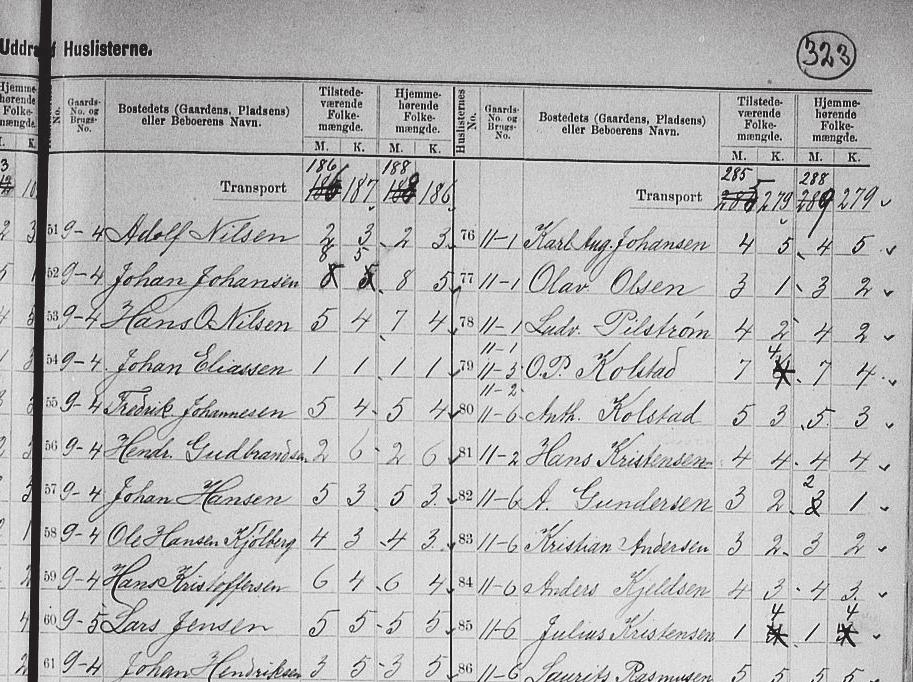 Uddr f Huslisterne.
323
Hjemme-
hørende
Folke-
mængde.
M. K.
No.
Gaards-
No. og
Brugs-
No.
Bostedets (Gaardens, Pladsens)
eller Beboerens Navn.
Tilstede-
værende
Folke-
mængde.
M. K.
Hjemme-
hørende
Folke-
mængde.
M. K.
Huslisternes
No.
Gaards-
No. og
Brugs-
No.
Bostedets (Gaardens, Pladsens)
eller Beboerens Navn.
Tilstede-
værende
Folke-
mængde.
M. K.
Hjemme-
hørende
Folke-
mængde.
M. K.
Transport 186 187 188 186
Transport 285 279 288 279
51 9-4 Adolf Nilsen 2 3 2 3
76 11-1 Karl Aug. Johansen 4 5 4 5
52 9-4 Johan Johansen 8 5 8 5
77 11-1 Olav Olsen 3 1 3 2
53 9-4 Hans O. Nilsen 5 4 7 4
78 11-1 Ludv. Pilstrøm 4 2 4 2
54 9-4 Johan Eliassen 1 1 1 1
79 11-1 11-3 11-2 O.P. Kolstad 7 4 7 4
55 9-4 Fredrik Johannesen 5 4 5 4
80 11-6 Anth. Kolstad 5 3 5 3
56 9-4 Hendr. Gudbrandsen 2 6 2 6
81 11-2 Hans Kristensen 4 4 4 4
57 9-4 Johan Hansen 5 3 5 3
82 11-6 A. Gundersen 3 2 2 1
58 9-4 Ole Hansen Kjølberg 4 3 4 3
83 11-6 Kristian Andersen 3 2 3 2
59 9-4 Hans Kristoffersen 6 4 6 4
84 11-6 Anders Kjeldsen 4 3 4 3
60 9-5 Lars Jensen 5 5 5 5
85 11-6 Julius Kristensen 1 4 1 4
61 9-4 Johan Hendriksen 3 5 3 5
86 11-6 Laurits Rasmusen 5 5 5 5